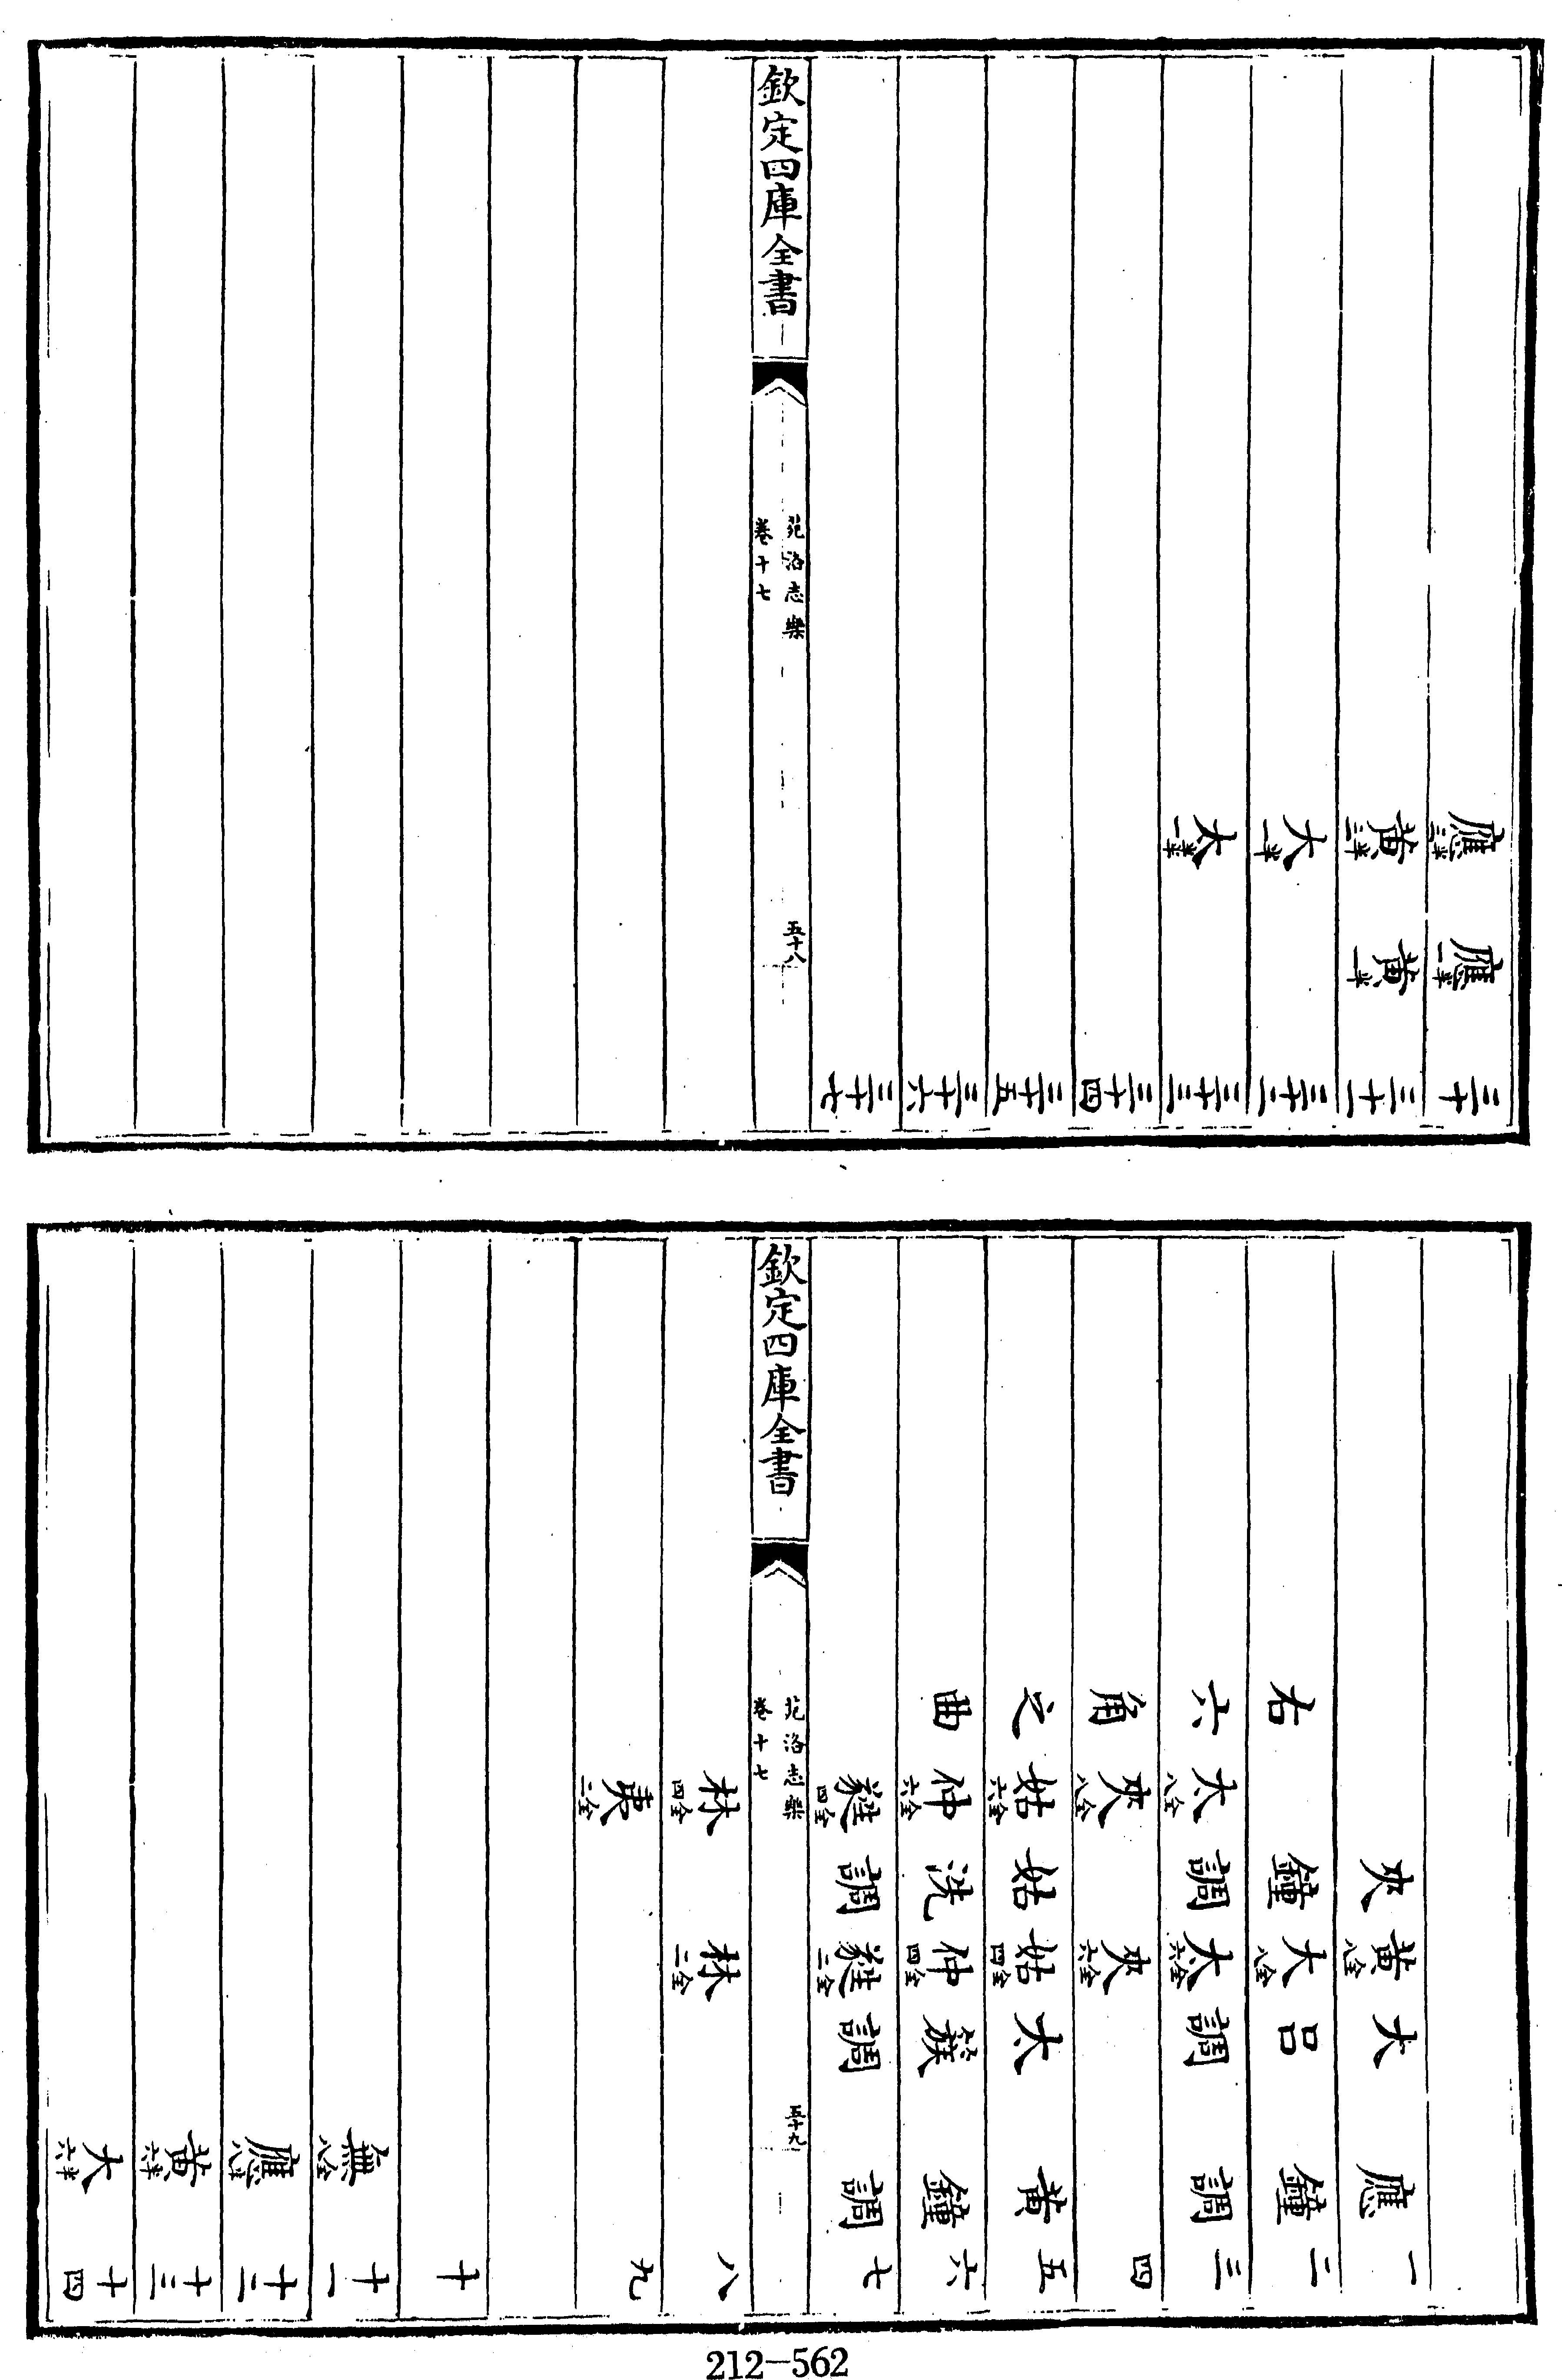 應三半 應一半 三十
黃二半 黃一半 三十一
大一半 三十二
太一半 三十三
三十四
三十五
三十六
三十七
欽定四庫全書
苑洛志樂
卷十七
五十八
夾 黃八全 大 應 一
右 鐘 大八全 呂 鐘 二
六 太八全 調 太六全 調 調 三
角 夾八全 夾六全 四
之 姑六全 姑 姑四全 太 黃 五
曲 仲六全 洗 仲四全 簇 鐘 六
蕤四全 調 蕤二全 調 調 七
欽定四庫全書
苑洛志樂
卷十七
五十九
林四全 林二全 八
夷二全 九
十
無八全 十一
應八全 十二
黃六半 十三
大六半 十四
212-562